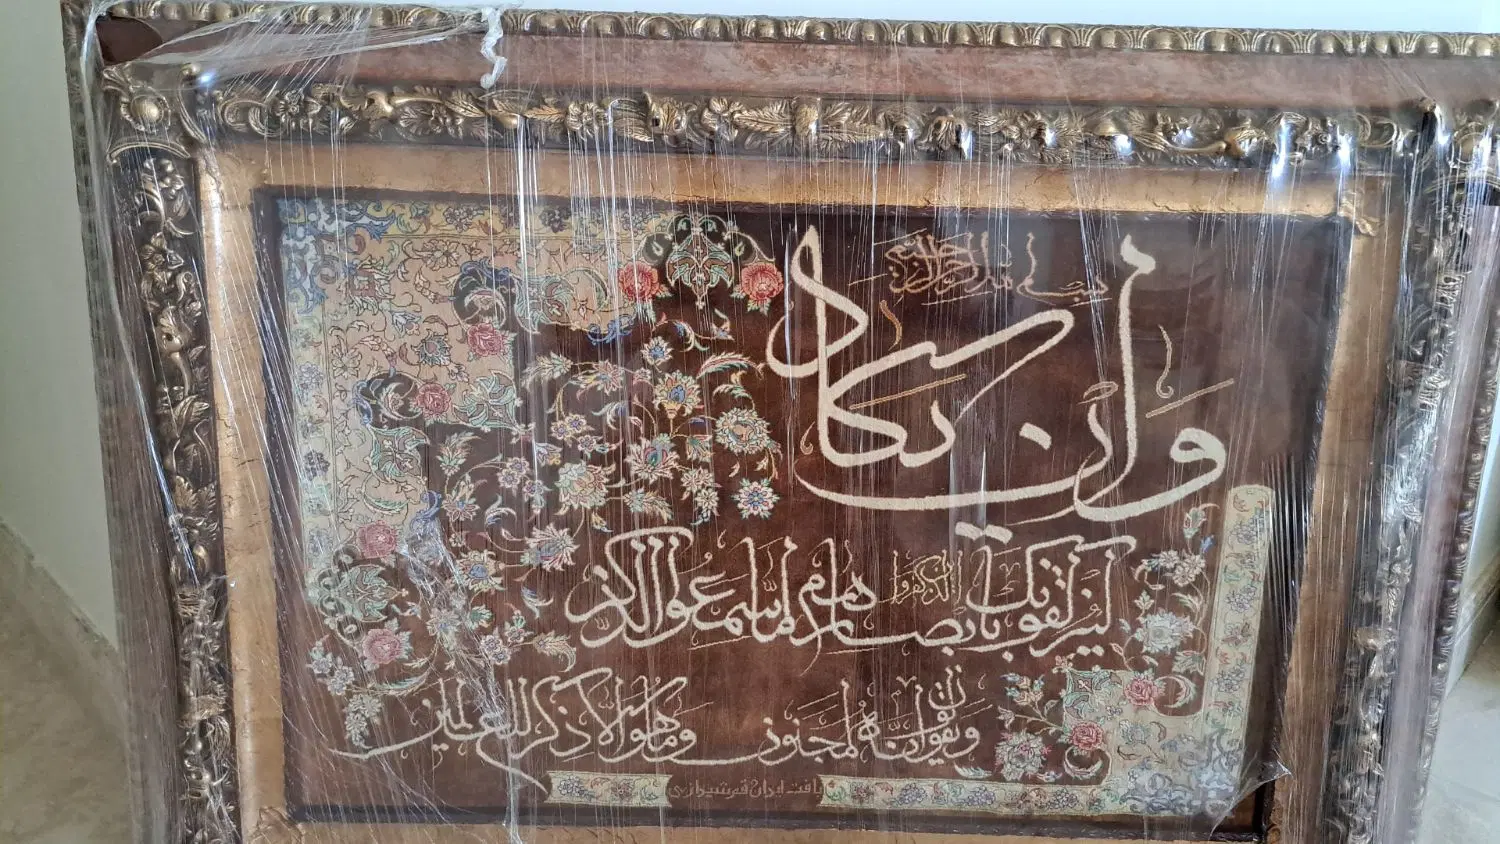 بسم الله الرحمن الرحیم
وان یکاد
الذین کفروا
لیزلقونک بابصارهم لما سمعوا الذکر
ویقولون انه لمجنون وما هو الا ذکر للعالمین
بافت ایران قم شیرازی